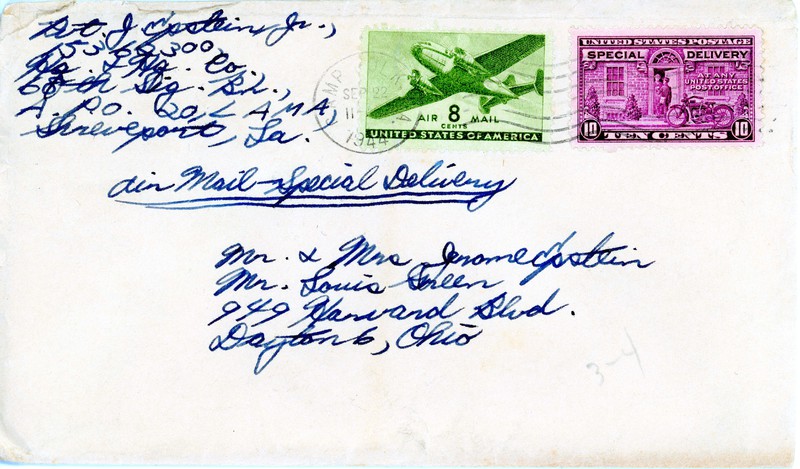 Pvt. J. Epstein, Jr.,
15362300,
Hq. & Hq. Co.
68th Sig. Bn.,
A.P.O. 20, LAMA,
Shreveport, La.
SEP 22
1944
AIR 8 MAIL
CENTS
UNITED STATES OF AMERICA
UNITED STATES POSTAGE
SPECIAL DELIVERY
AT ANY
UNITED STATES
POST OFFICE
10 TEN CENTS 10
Air Mail - Special Delivery
Mr. & Mrs Jerome Epstein
Mr. Louis Green
949 Harvard Blvd.
Dayton 6, Ohio
3-4